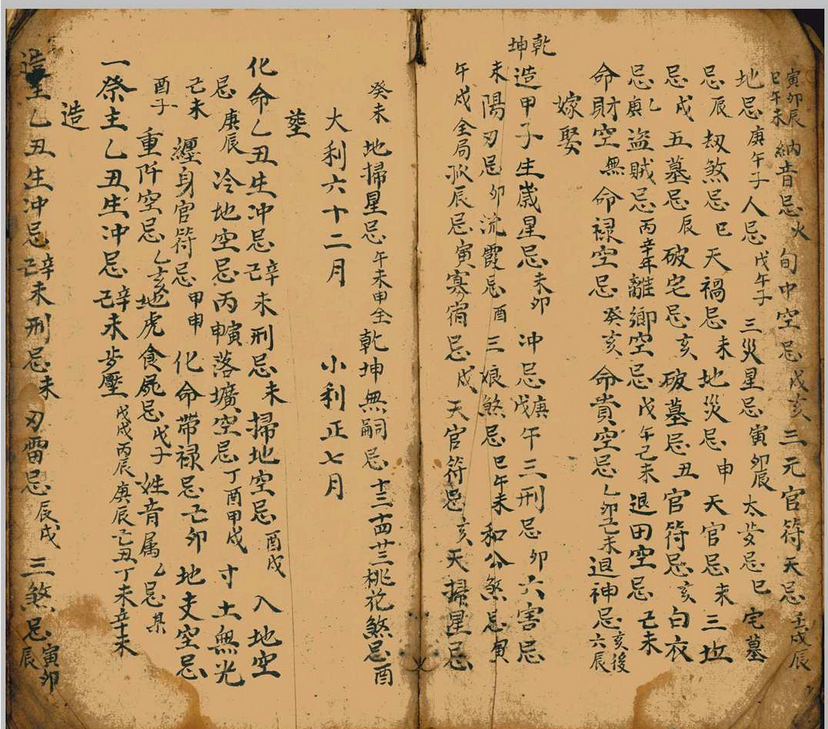 寅卯辰巳午未納音忌火旬中空忌戌亥三元官符天忌壬戌辰
地忌庚午子人忌戊午子三災星忌寅卯辰太歲忌巳宅墓
忌辰劫煞忌巳天禍忌未地災忌申天官忌未三坵
忌戌五墓忌辰破宅忌亥破墓忌丑官符忌亥白衣
忌乙庚盜賊忌丙辛年離鄉空忌戊午己未退田空忌己未
命財空無命祿空忌癸亥命貴空忌乙卯乙未退神忌亥後六辰
嫁娶
乾坤造甲子生歲星忌未卯沖忌庚戊午三刑忌卯六害忌
未陽刃忌卯流霞忌酉三娘煞忌巳午未和公煞忌寅
午戌全局忌辰忌寅寡宿忌戌天官符忌亥天掃星忌
癸未地掃星忌午未申全乾坤無嗣忌十三十四廿三桃花煞忌酉
大利六十二月小利正七月
塟
化命乙丑生沖忌辛己未刑忌未掃地空忌酉戌入地空
忌庚辰冷地空忌丙申寅落壙空忌丁酉甲戌寸土無光
己未纏身官符忌甲申化命帶祿忌己卯地支空忌
酉子重阡空忌乙亥地虎食屍忌戊子姓音属乙忌某
一祭主乙丑生沖忌辛己未岁壓戊戌丙辰庚辰己丑丁未辛未
造
造主乙丑生沖忌辛己未刑忌未刃雷忌辰戌三煞忌寅卯辰